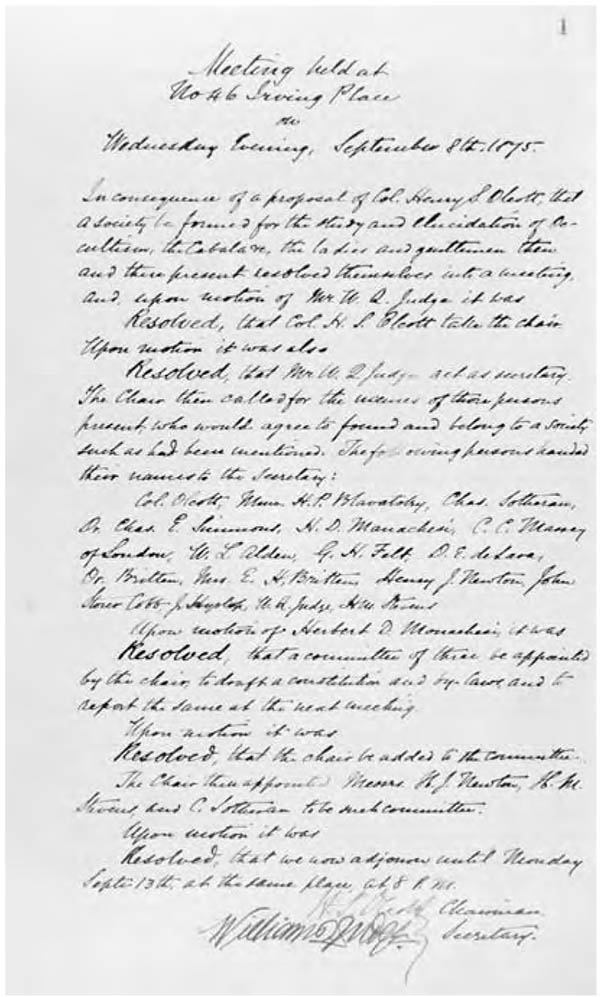 1
Meeting held at
No 46 Irving Place
on
Wednesday Evening, September 8th. 1875.
In consequence of a proposal of Col. Henry S. Olcott, that
a society be formed for the study and elucidation of Oc-
cultism, the Cabala &c, the ladies and gentlemen then
and there present resolved themselves into a meeting,
and, upon motion of Mr. W. Q. Judge it was
Resolved, that Col. H. S. Olcott take the chair.
Upon motion it was also
Resolved, that Mr. W. Q. Judge act as secretary.
The Chair then called for the names of those persons
present, who would agree to found and belong to a society
such as had been mentioned. The following persons handed
their names to the Secretary:
Col. Olcott, Mme. H. P. Blavatsky, Chas. Sotheran,
Dr. Chas. E. Simmons, H. D. Monachesi, C. C. Massey
of London, W. L. Alden, G. H. Felt, D. E. de Lara,
Dr. Britten, Mrs. E. H. Britten, Henry J. Newton, John
Storer Cobb, J. Hyslop, W. Q. Judge, H. M. Stevens
Upon motion of Herbert D. Monachesi, it was
Resolved, that a committee of three be appointed
by the chair, to draft a constitution and by-laws, and to
report the same at the next meeting.
Upon motion it was
Resolved, that the chair be added to the committee.
The Chair then appointed Messrs. H. J. Newton, H. M.
Stevens, and C. Sotheran to be such committee.
Upon motion it was
Resolved, that we now adjourn until Monday
Sept. 13th, at the same place, at 8 P.M.
H. S. Olcott Chairman.
William Q Judge. Secretary.